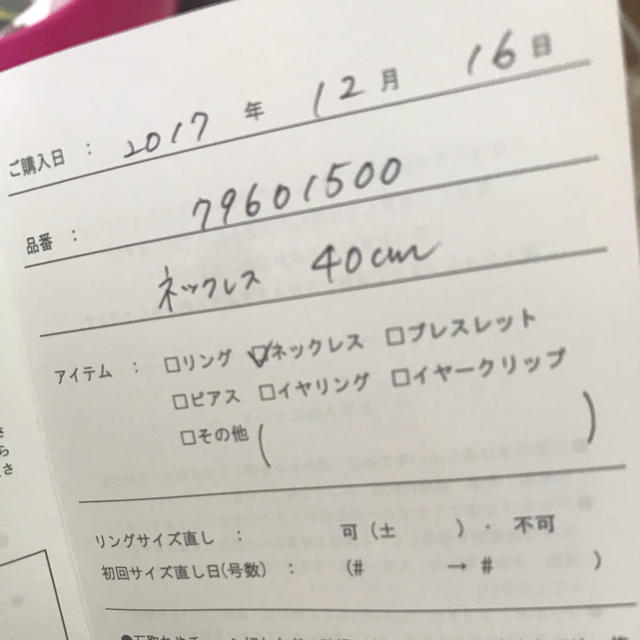 ご購入日 : 2017 年 12 月 16 日
品番 : 79601500
ネックレス 40cm
アイテム : □リング ☑ネックレス □ブレスレット
□ピアス □イヤリング □イヤークリップ
□その他 ( )
リングサイズ直し : 可 (± )・ 不可
初回サイズ直し日(号数) : (# → # )